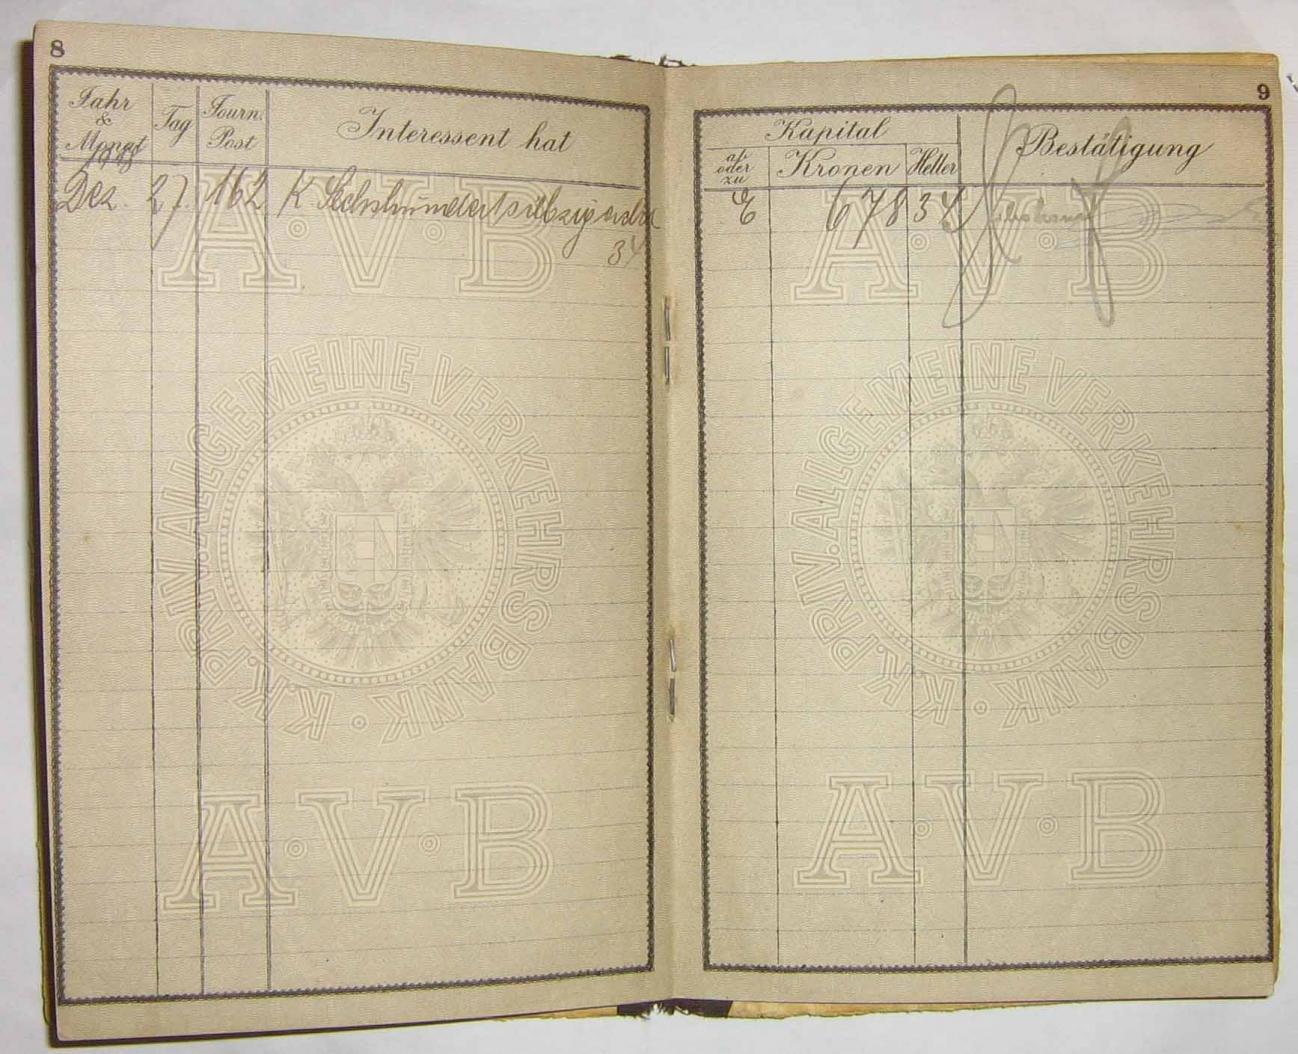 8
Jahr & Monat
Tag
Journ. Post
Interessent hat
Dez. 27. 162 K Sechshundertsiebzig
34
A·V·B
K.K.PRIV.ALLGEMEINE VERKEHRSBANK
A·V·B
9
Kapital
ab oder zu
Kronen
Heller
Bestätigung
E 678 34
A·V·B
K.K.PRIV.ALLGEMEINE VERKEHRSBANK
A·V·B